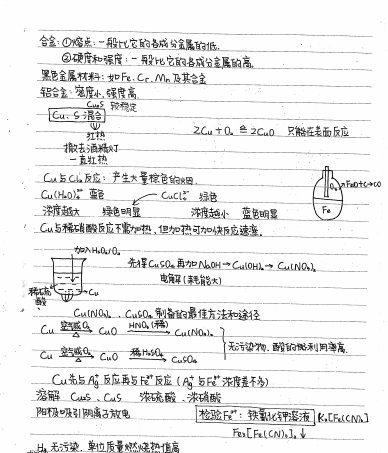 合金：①熔点：一般比它的各成分金属的低.
②硬度和强度：一般比它的各成分金属的高.
黑色金属材料：如Fe、Cr、Mn及其合金
铝合金：密度小、强度高.
Cu₂S 较稳定
Cu、S混合
红热
撤去酒精灯
一直红热
2Cu + O₂ ≙ 2CuO 只能在表面反应
Cu与Cl₂反应：产生大量棕色的烟.
Cu(H₂O)₄²⁺ 蓝色 CuCl₄²⁻ 绿色
浓度越大 绿色明显 浓度越小 蓝色明显
O₂
Fe
Cu与稀硝酸反应不需加热，但加热可加快反应速率.
加入H₂O₂/O₂
稀硫酸
Cu
先得CuSO₄再加NaOH→Cu(OH)₂→Cu(NO₃)₂
电解(耗能大)
Cu(NO₃)₂、CuSO₄制备的最佳方法和途径
Cu 空气或O₂ △ CuO HNO₃(稀) Cu(NO₃)₂
Cu 空气或O₂ △ CuO 稀H₂SO₄ CuSO₄
无污染物，酸的利用率高.
Cu先与Ag⁺反应再与Fe³⁺反应（Ag⁺与Fe³⁺浓度差不多）
溶解 CuS、Cu₂S 浓硫酸、浓硝酸
阳极吸引阴离子放电
检验Fe²⁺：铁氰化钾溶液 K₃[Fe(CN)₆]
Fe₃[Fe(CN)₆]₂↓
H₂ 无污染，单位质量燃烧热值高